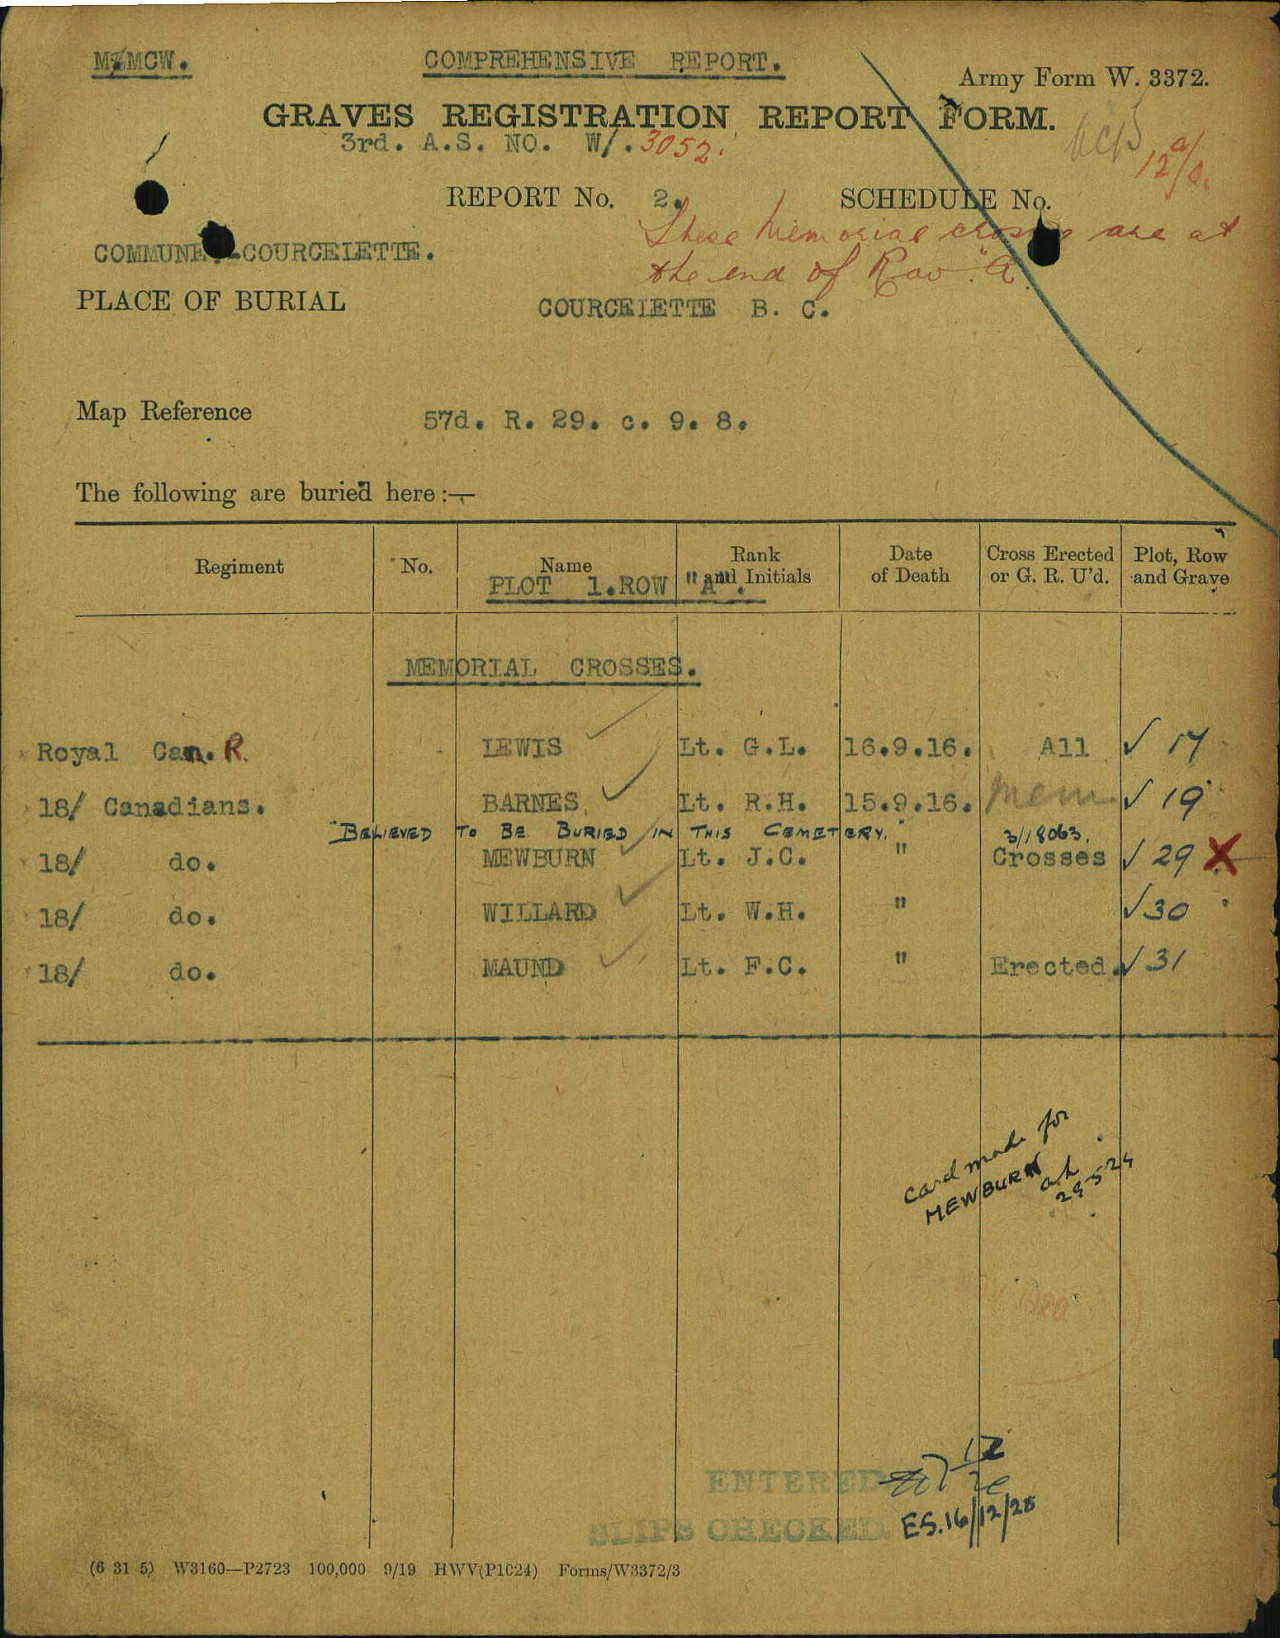 M/MCW.
COMPREHENSIVE REPORT.
Army Form W. 3372.
GRAVES REGISTRATION REPORT FORM.
3rd. A.S. NO. W/. 3052.
REPORT No. 2.
SCHEDULE No.
These memorial crosses are at
the end of Row "A"
COMMUNE COURCELETTE.
PLACE OF BURIAL
COURCELETTE B. C.
Map Reference
57d. R. 29. c. 9. 8.
The following are buried here :—
Regiment No. Name Rank and Initials Date of Death Cross Erected or G. R. U'd. Plot, Row and Grave
PLOT 1. ROW "A".
MEMORIAL CROSSES.
Royal Can. R. LEWIS Lt. G.L. 16.9.16. All ✓ 17
18/ Canadians. BARNES Lt. R.H. 15.9.16. Mem. ✓ 19
"BELIEVED TO BE BURIED IN THIS CEMETERY." 3/18063.
18/ do. MEWBURN Lt. J.C. " Crosses ✓ 29 X
18/ do. WILLARD Lt. W.H. " ✓ 30
18/ do. MAUND Lt. F.C. " Erected. ✓ 31
card made for
MEWBURN
29-5-24
ENTERED
SLIPS CHECKED.
E.S. 16/12/25
(6 31 5) W3160—P2723 100,000 9/19 HWV(P1024) Forms/W3372/3